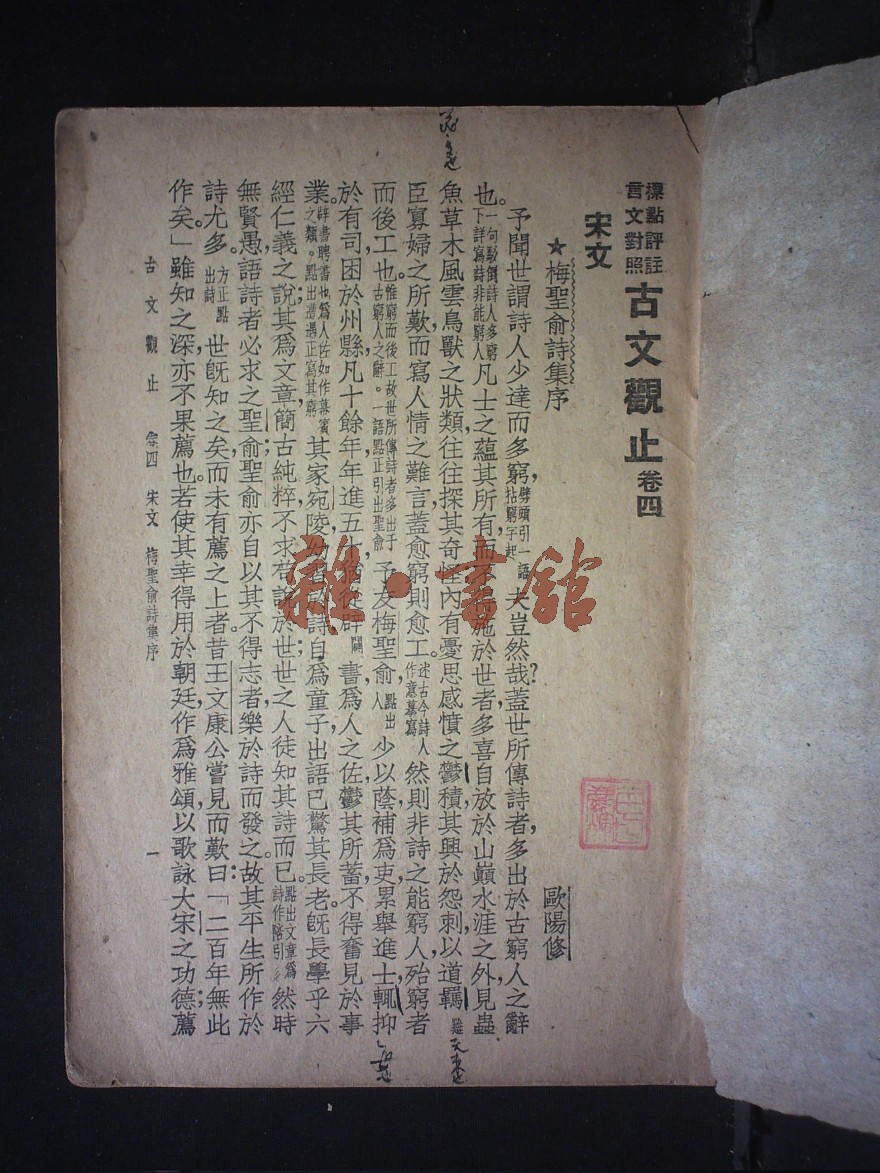 標點評註
言文對照
古文觀止 卷四
宋文
★梅聖俞詩集序
歐陽修
予聞世謂詩人少達而多窮，劈頭引一語拈窮字起夫豈然哉？蓋世所傳詩者，多出於古窮人之辭
也。一句駁倒詩人多窮下詳寫詩非能窮人凡士之蘊其所有，而不得施於世者，多喜自放於山巔水涯之外，見蟲
魚草木風雲鳥獸之狀類，往往探其奇怪內有憂思感憤之鬱積，其興於怨刺，以道羈
臣寡婦之所歎，而寫人情之難言，蓋愈窮則愈工。述古今詩人作意摹寫然則非詩之能窮人，殆窮者
而後工也。惟窮而後工故世所傳詩者多出于古窮人之辭。一語點正引出聖俞予友梅聖俞，點出人少以蔭補爲吏，累舉進士，輒抑
於有司，困於州縣，凡十餘年，年進五十，猶從辟闢書，爲人之佐，鬱其所蓄，不得奮見於事
業。辟書聘書也爲人佐如作幕賓之類。點出遭遇正寫其窮其家宛陵，幼習於詩，自爲童子，出語已驚其長老。旣長，學乎六
經仁義之說；其爲文章，簡古純粹，不求苟說於世；世之人徒知其詩而已。點出文章爲詩作陪引然時
無賢愚，語詩者必求之聖俞；聖俞亦自以其不得志者，樂於詩而發之。故其平生所作，於
詩尤多。方正點出詩世旣知之矣，而未有薦之上者。昔王文康公嘗見而歎曰：「二百年無此
作矣。」雖知之深，亦不果薦也。若使其幸得用於朝廷，作爲雅頌，以歌詠大宋之功德；薦
古文觀止 卷四 宋文 梅聖俞詩集序 一
雜·書館